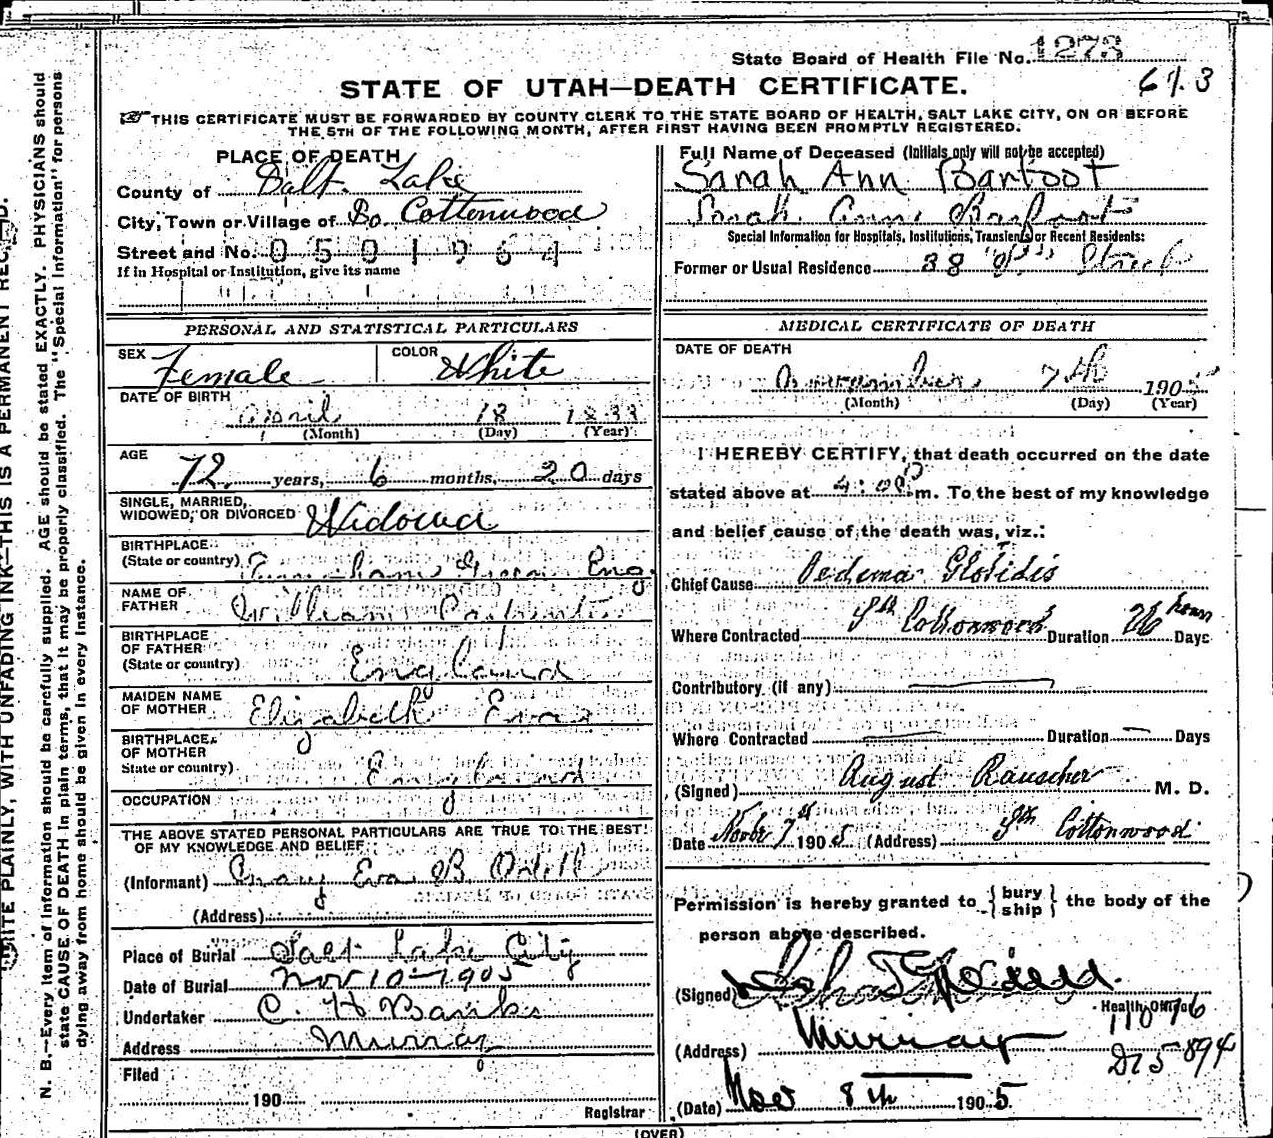 State Board of Health File No. 1273
STATE OF UTAH—DEATH CERTIFICATE.
THIS CERTIFICATE MUST BE FORWARDED BY COUNTY CLERK TO THE STATE BOARD OF HEALTH, SALT LAKE CITY, ON OR BEFORE
THE 5TH OF THE FOLLOWING MONTH, AFTER FIRST HAVING BEEN PROMPTLY REGISTERED.
PLACE OF DEATH
County of Salt Lake
City, Town or Village of So. Cottonwood
Street and No. 0501964
If in Hospital or Institution, give its name
Full Name of Deceased (Initials only will not be accepted)
Sarah Ann Barfoot
Sarah Ann Barfoot
Special Information for Hospitals, Institutions, Transients or Recent Residents:
Former or Usual Residence 38 Street
PERSONAL AND STATISTICAL PARTICULARS
SEX Female COLOR White
DATE OF BIRTH
April 18 1833
(Month) (Day) (Year)
AGE
72 years, 6 months, 20 days
SINGLE, MARRIED,
WIDOWED, OR DIVORCED Widowed
BIRTHPLACE
(State or country) Green Eng.
NAME OF
FATHER William
BIRTHPLACE
OF FATHER
(State or country) England
MAIDEN NAME
OF MOTHER Elizabeth
BIRTHPLACE
OF MOTHER
State or country) England
OCCUPATION
THE ABOVE STATED PERSONAL PARTICULARS ARE TRUE TO THE BEST
OF MY KNOWLEDGE AND BELIEF
(Informant) Mary Eva B.
(Address)
Place of Burial Salt Lake City
Date of Burial Nov 10-1905
Undertaker C. H Banks
Address Murray
Filed
190
Registrar
MEDICAL CERTIFICATE OF DEATH
DATE OF DEATH
November 7th 1905
(Month) (Day) (Year)
I HEREBY CERTIFY, that death occurred on the date
stated above at 4:00 P m. To the best of my knowledge
and belief cause of the death was, viz.:
Chief Cause Oedema Glotidis
Where Contracted Sth Cottonwood Duration 26 hours Days
Contributory (if any)
Where Contracted Duration Days
(Signed) August Rauscher M. D.
Date Novbr 7th 1905 (Address) Sth Cottonwood
Permission is hereby granted to { bury ship } the body of the
person above described.
(Signed)
Health Officer
(Address) Murray
(Date) Nov 8th 1905
(OVER)
N. B.—Every item of information should be carefully supplied. AGE should be stated EXACTLY. PHYSICIANS should
state CAUSE OF DEATH in plain terms, that it may be properly classified. The "Special Information" for persons
dying away from home should be given in every instance.
WRITE PLAINLY, WITH UNFADING INK—THIS IS A PERMANENT RECORD.